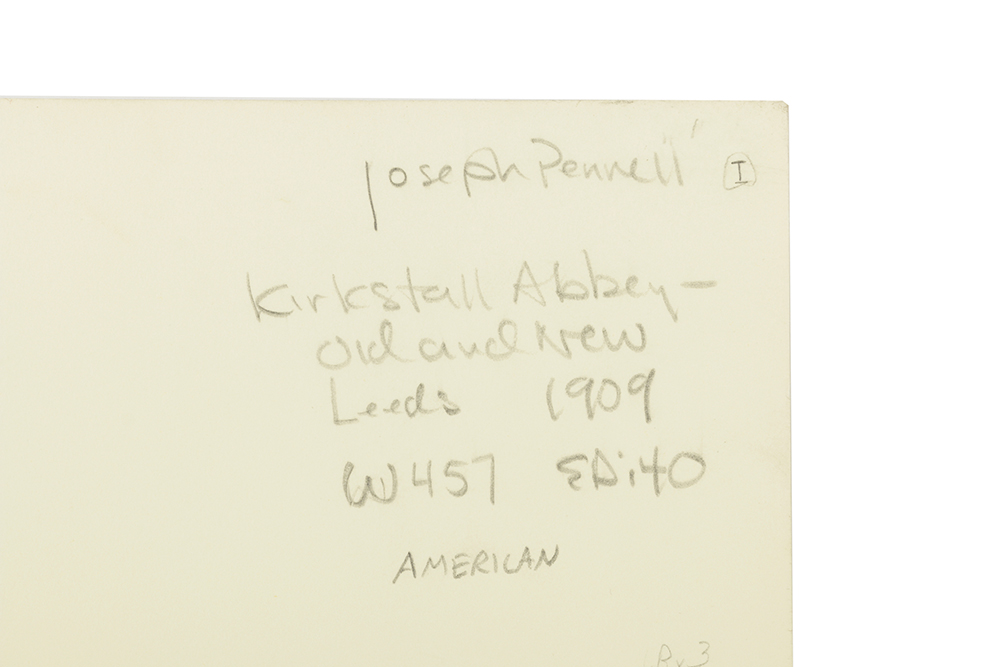 Joseph Pennell I
Kirkstall Abbey-
Old and New
Leeds 1909
W457 EDi40
AMERICAN